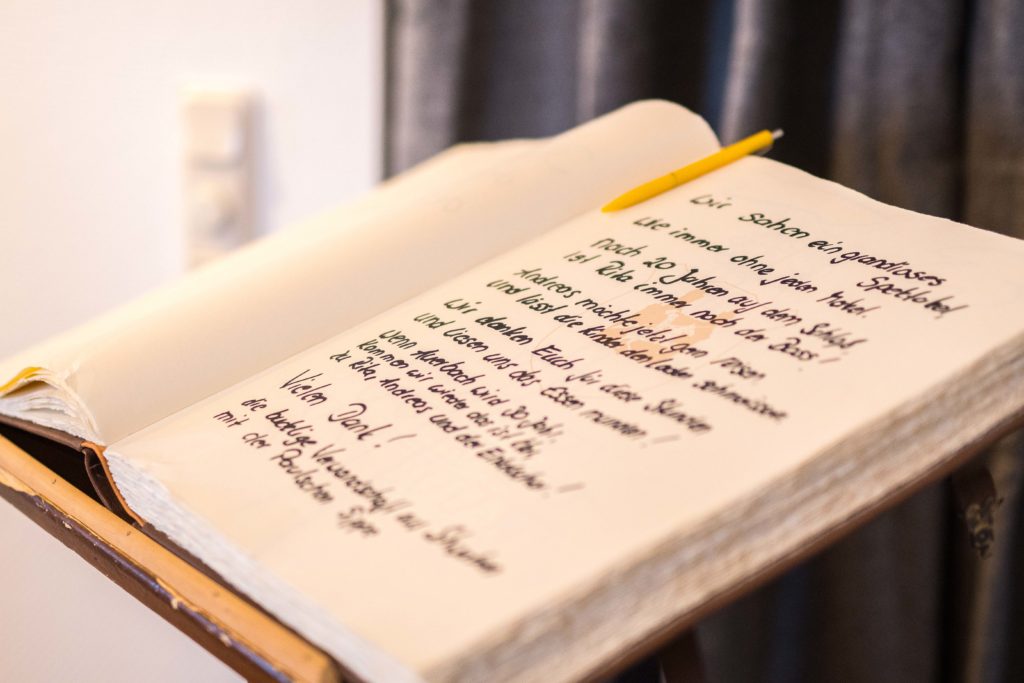 Wir sahen ein grandioses Spektakel
wie immer ohne jeden Makel
Nach 20 Jahren auf dem Schloß,
ist Rita immer noch der Boss!
Andreas möchte jetzt gern reisen
und lässt die Kinder den Laden schmeissen
Wir danken Euch für diese Stunden
und lassen uns das Essen munden!
Wenn Auerbach wird 30 Jahr,
kommen wir wieder das ist klar,
zu Rita, Andreas und der Enkelschar!
Vielen Dank!
die bucklige Verwandtschaft aus
mit der Sippe